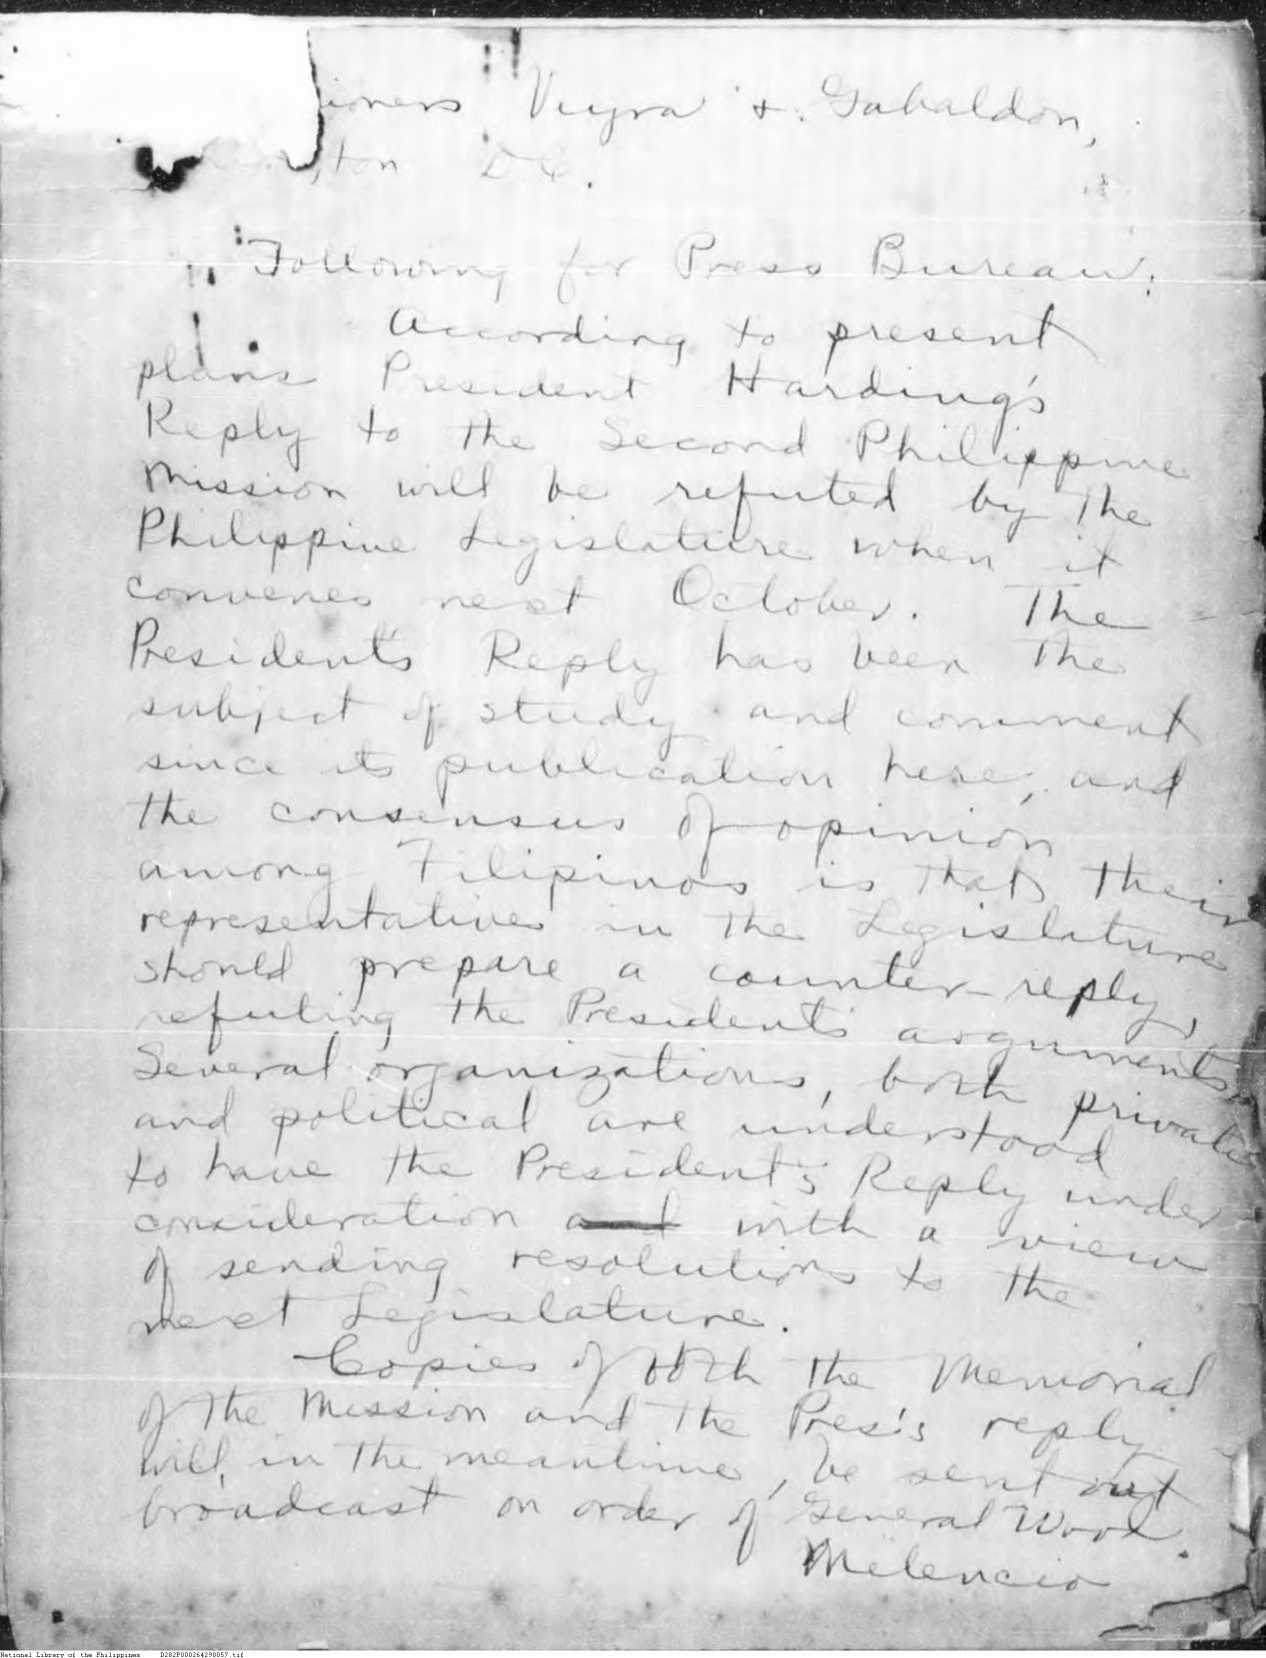 ioners Veyra & Gabaldon,
ton D.C.
Following for Press Bureau:
According to present
plans President Harding's
Reply to the Second Philippine
Mission will be refuted by the
Philippine Legislature when it
convenes next October. The
President's Reply has been the
subject of study and comment
since its publication here, and
the consensus of opinion
among Filipinos is that their
representatives in the Legislature
should prepare a counter-reply,
refuting the President's arguments.
Several organizations, both private
and political are understood
to have the President's Reply under
consideration and with a view
of sending resolutions to the
next Legislature.
Copies of both the Memorial
of the Mission and the Pres.'s reply
will, in the meantime, be sent out
broadcast on order of General Wood.
Melencio
National Library of the Philippines D282P000264298057.tif